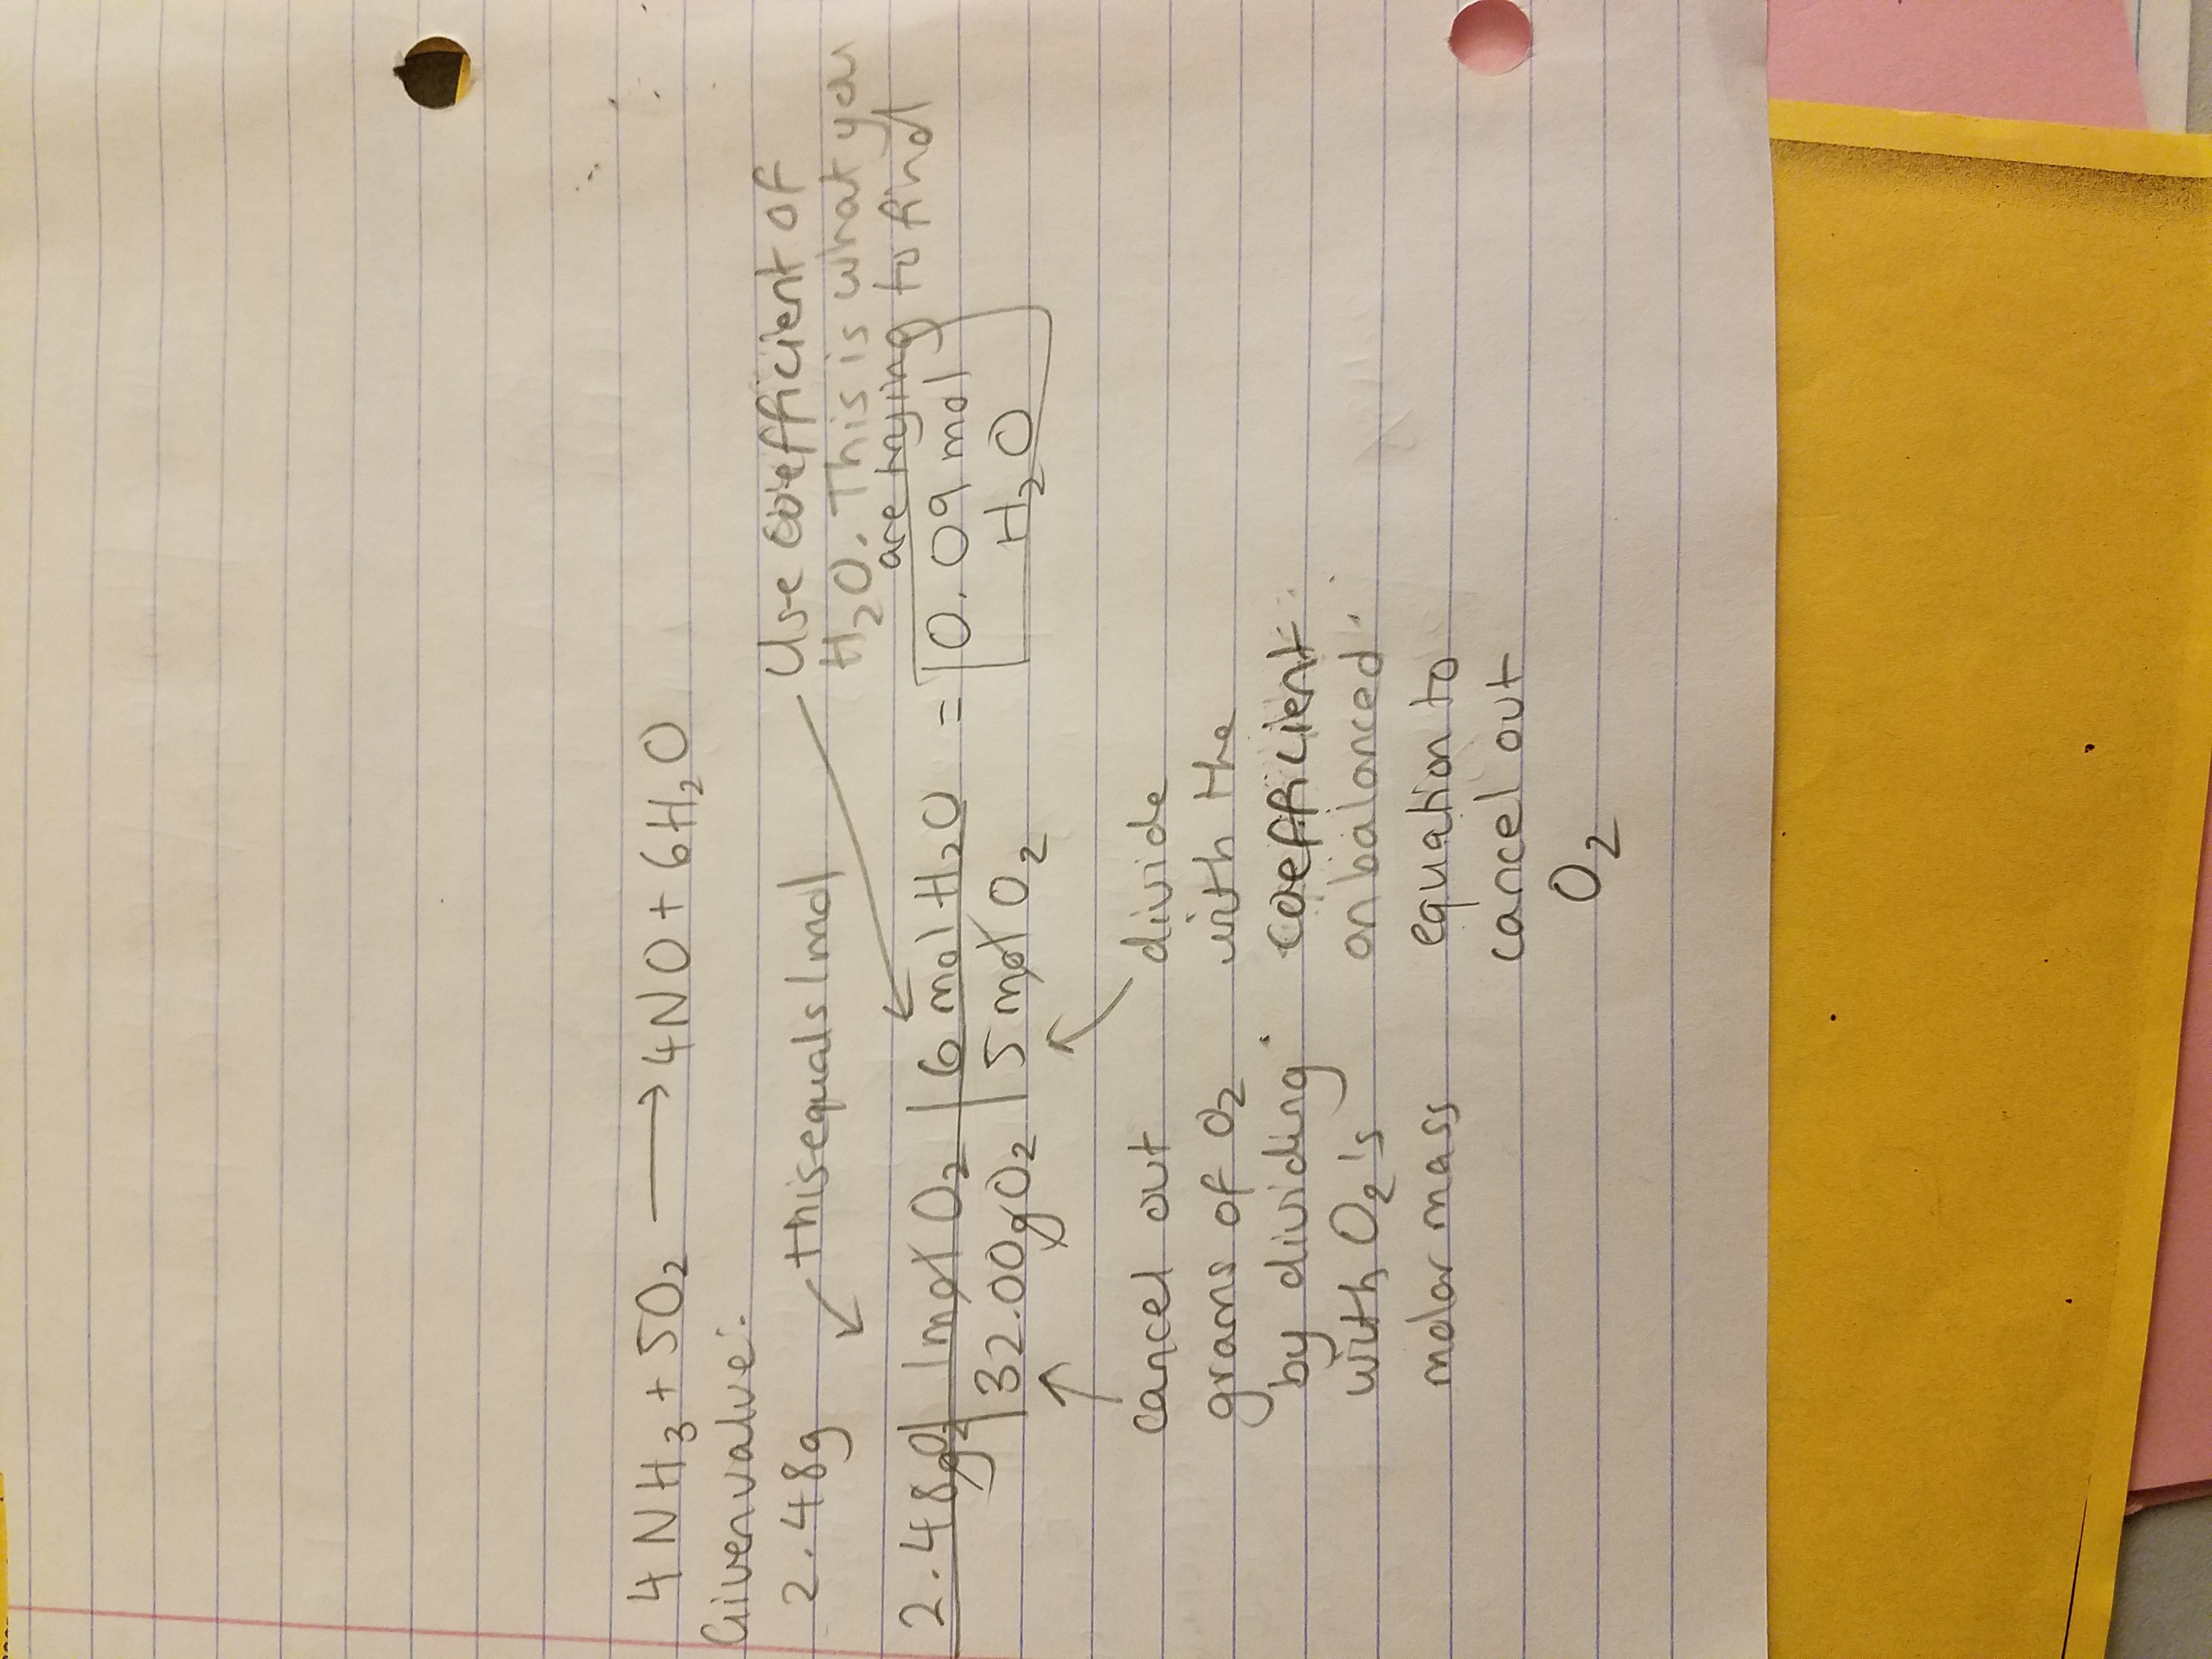 4NH₃ + 5O₂ → 4NO + 6H₂O
Given value:
2.48g
this equals 1 mol
Use coefficient of
H₂O. This is what you
are trying to find
2.48gO₂ | 1 mol O₂ | 6 mol H₂O = 0.09 mol
32.00gO₂ | 5 mol O₂
H₂O
cancel out
grams of O₂
by dividing
with O₂'s
molar mass
divide
with the
coefficient
on balanced
equation to
cancel out
O₂